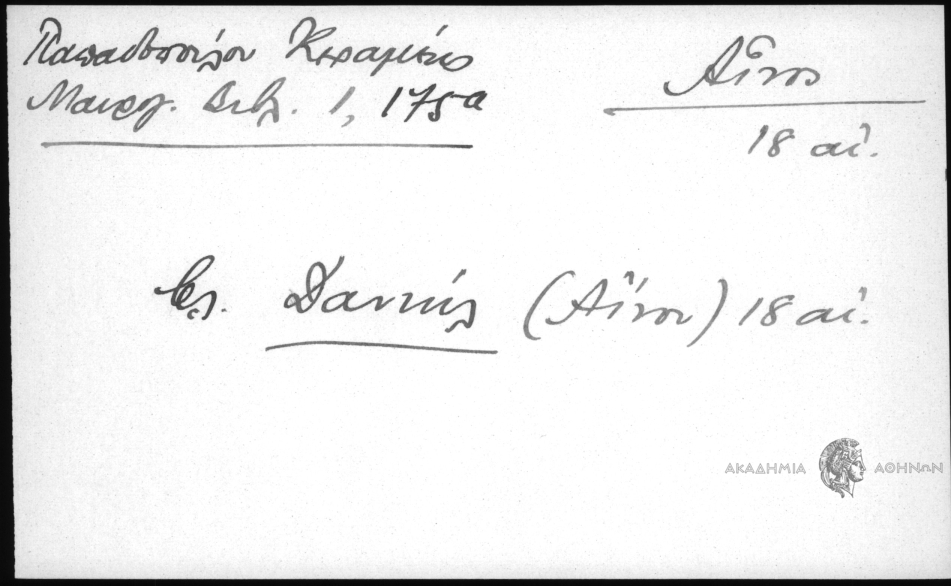 Παπαδοπούλου Κεραμέως
Μαυρογ. Βιβλ. 1, 175α
Αἶνος
18 αἰ.
βλ. Δανιήλ (Αἴνου) 18 αἰ.
ΑΚΑΔΗΜΙΑ ΑΘΗΝΩΝ